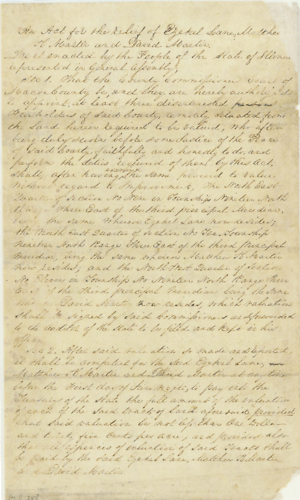 An Act for the relief of Ezekiel Lane, Mathew
H. Martin and David Martin
Be it enacted by the People of the State of Illinois
represented in General Assembly,
Sect. 1 That the County Commissioners Court of
Macon County be, and they are hereby authorized
to appoint, at least three disinterested
Freeholders of said County,
the Land herein required to be valued, who after
being duly sworn before some Justice of the Peace
of said County, faithfully and honestly to do, and
perform the duties required of them by this Act,
shall, after having the same proceed to value
without regard to improvement, the North East
Quarter of Section No. in Township No. Nineteen North
Range Three East of the third principal Meridian,
being the same whereon Ezekiel Lane now resides;
the North East Quarter of Section No. Ten Township
Nineteen North Range Three East of the third principal
meridian, being the same whereon Mathew H. Martin
now resides, and the North West Quarter of Section
No. Eleven in Township No. Nineteen North Range Three
East of the third principal Meridian, being the same
David Martin now resides, which valuation
shall be signed by said Commissioners and forwarded
to the auditor of the State to be filed and kept in his
office.
Sec 2. After said valuation so made and reported,
it shall be lawful for the said Ezekiel Lane,
Matthew H. Martin and David Martin at any time
before the first day of next, to pay into the
Treasury of the State the full amount of the valuation
of each of the said tracts of Land aforesaid, provided
that said valuation be not less than One Dollar
and twenty five Cents per acre, and provided also
that the expences of valuation of said Lands shall
be paid by the said Ezekiel Lane, Matthew H. Martin
and David Martin